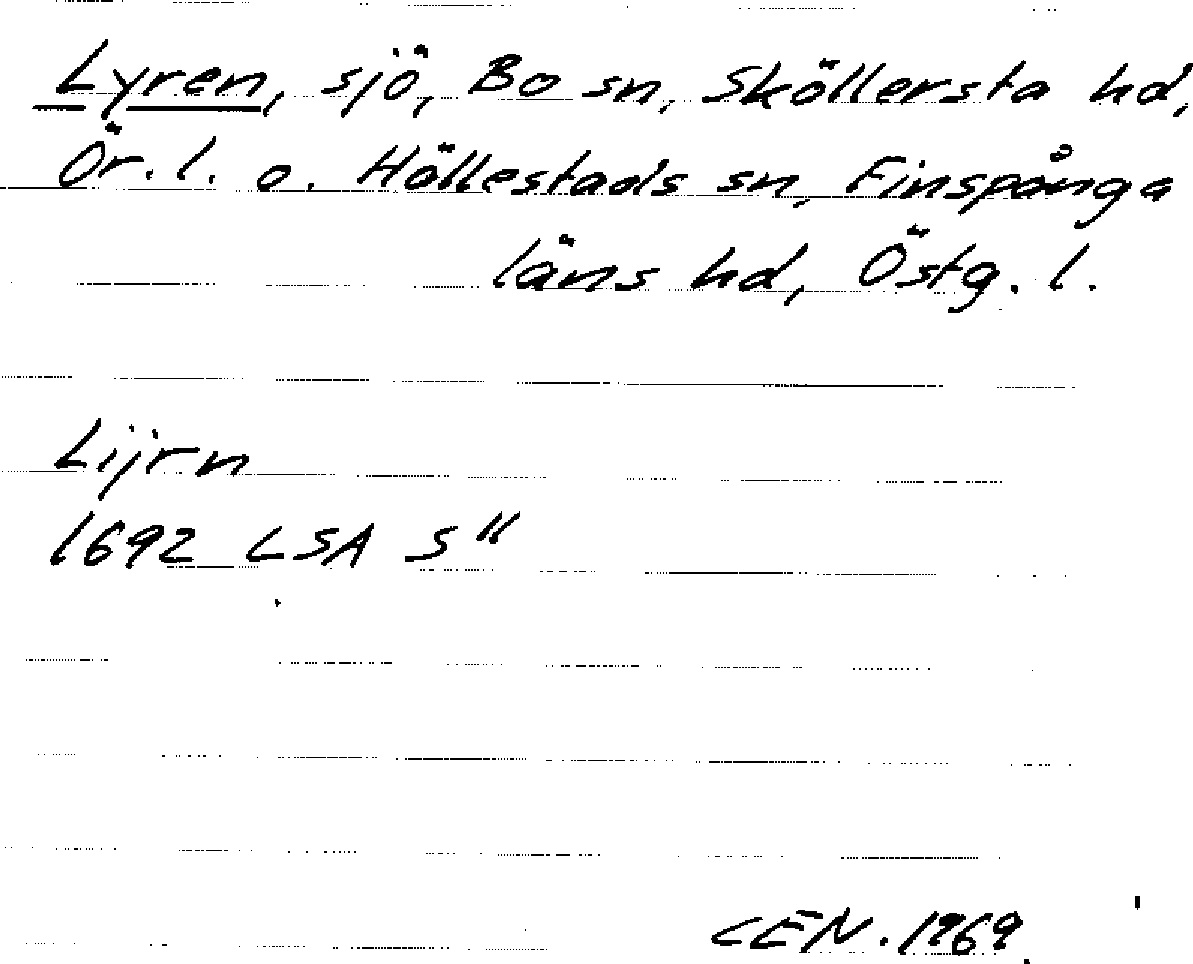 Lyren, sjö, Bo sn, Sköllersta hd,
Ör. l. o. Hällestads sn, Finspånga
läns hd, Östg. l.
Lijrn
1692 LSA S"
CEN. 1969